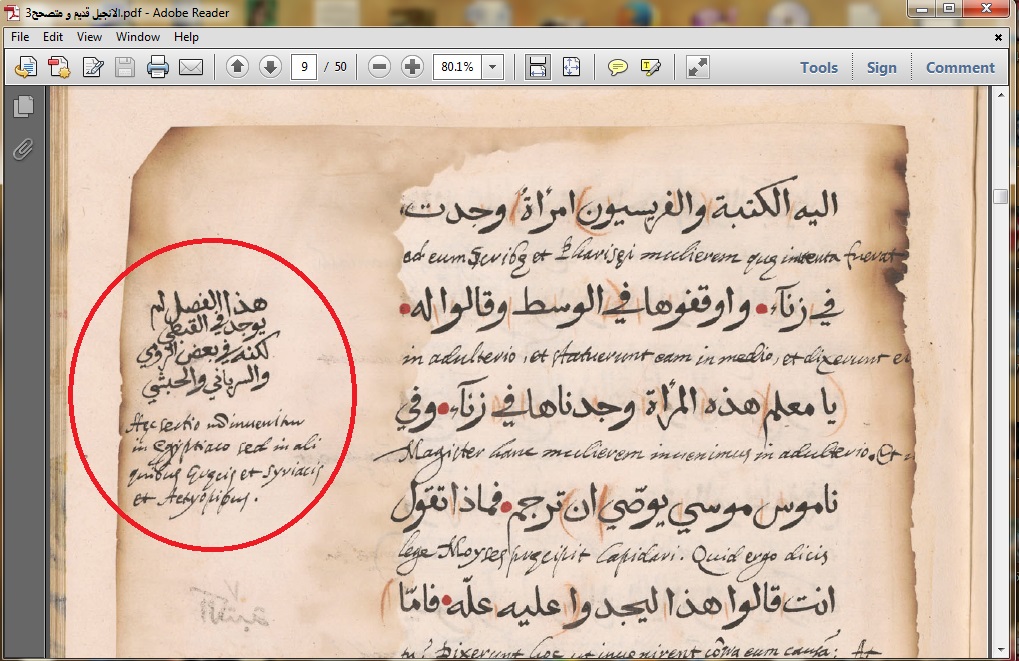 الانجيل قديم و متصحح3.pdf - Adobe Reader
File Edit View Window Help
9 / 50 80.1% Tools Sign Comment
اليه الكتبة والفريسيون امرأة وجدت
ad eum Scribę et Pharisęi mulierem quę inuenta fuerat
في زنآء • واوقفوها في الوسط وقالوا له •
in adulterio, et statuerunt eam in medio, et dixerunt ei
يا معلم هذه المرأة وجدناها في زنآء • وفي
Magister hanc mulierem inuenimus in adulterio. Et in
ناموس موسي يوصّي ان ترجم • فماذا تقول
lege Moyses pręcipit lapidari. Quid ergo dicis
انت قالوا هذا ليجدوا عليه علّه • فامّا
tu? Dixerunt hoc ut inuenirent cōtra eum causā: At
هذا الفصل لم
يوجد في القبطي
لكنه في بعض الرومي
والسرياني والحبشي
Hęc sectio nō inuenitur
in Egyptiaco sed in ali
quibus Gręcis et Syriacis
et Aetyopibus.